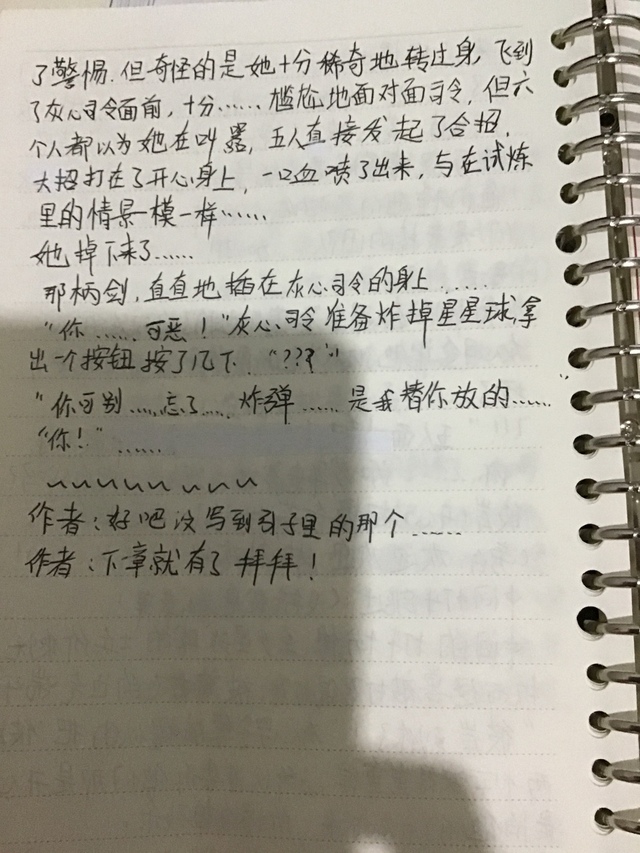 了警惕.但奇怪的是她十分稀奇地转过身,飞到
了灰心司令面前,十分……尴尬地面对面司令,但六
个人都以为她在叫嚣,五人直接发起了合招,
大招打在了开心身上,一口血喷了出来,与在试炼
里的情景一模一样……
她掉下来了……
那柄剑,直直地插在灰心司令的身上……
"你……可恶!"灰心司令准备炸掉星星球,拿
出一个按钮按了几下."???"
"你可别……忘了……炸弹……是我替你放的……"
"你!"……
作者:好吧没写到引子里的那个……
作者:下章就有了拜拜!